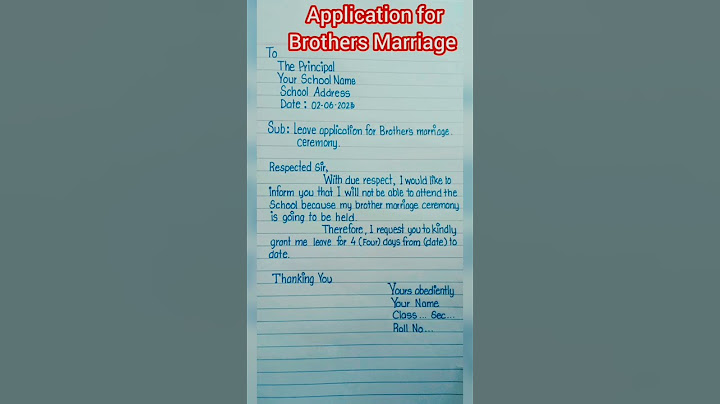 Application for
Brothers Marriage
To
The Principal
Your School Name
School Address
Date : 02-06-2023
Sub: Leave application for Brother's marriage.
Ceremony.
Respected Sir,
With due respect, I would like to
inform you that I will not be able to attend the
School because my brother marriage ceremony
is going to be held.
Therefore, I request you to kindly
grant me leave for 4 (Four) days from (date) to
date.
Thanking You
Yours abediently
Your Name
Class ... Sec...
Roll No...